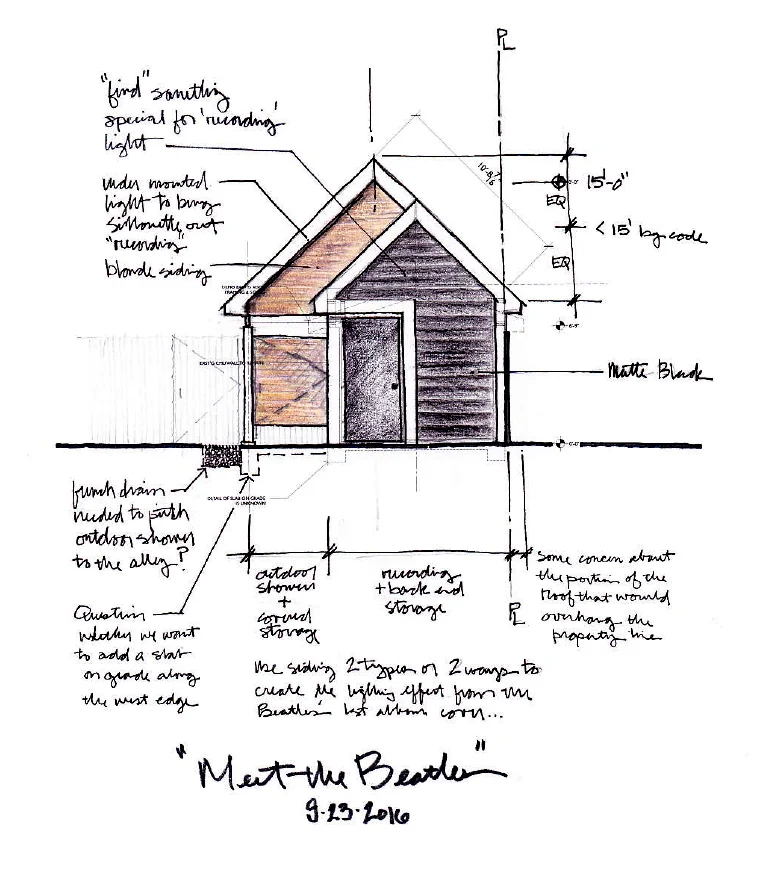 PL
"find" something
special for 'recording'
light
under mounted
light to bring
silhouette out
"recording"
blonde siding
10'-8 7/16"
15'-0"
EQ
< 15' by code
EQ
Matte Black
french drain
needed to push
outdoor shower
to the alley?
DETAIL OF SLAB ON GRADE
IS UNKNOWN
Question
whether we want
to add a slab
on grade along
the west edge
outdoor
shower
+
covered
storage
recording
+ back end
storage
PL
Some concern about
the portion of the
roof that would
overhang the
property line
Use siding 2 types or 2 ways to
create the lighting effect from the
Beatles' last album cover...
"Meet the Beatles"
9-23-2016